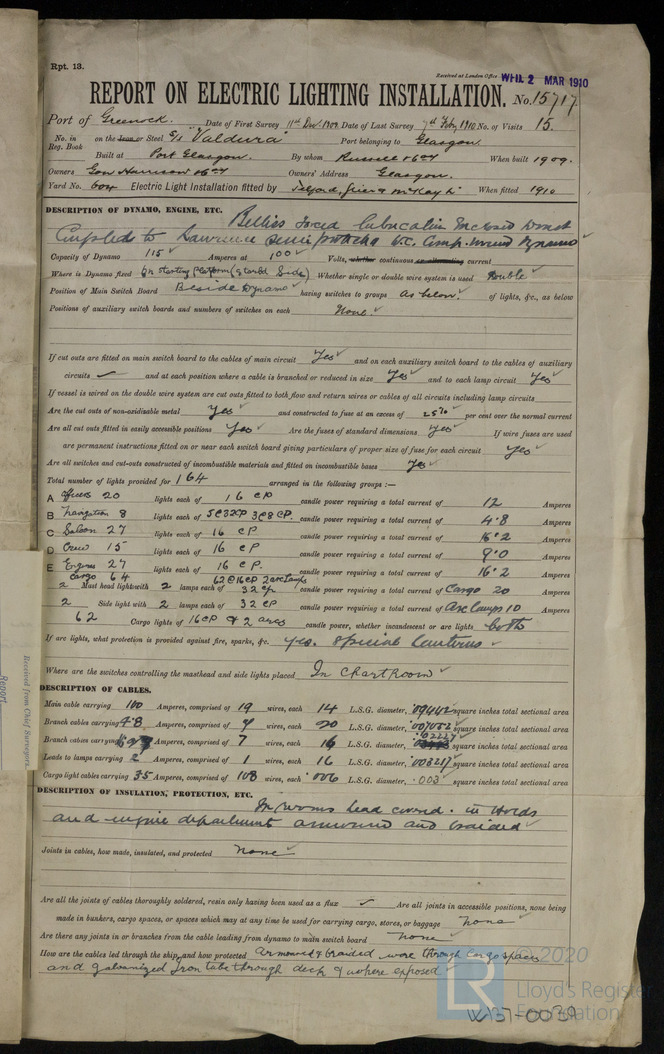 Rpt. 13.
Received at London Office WED. 2 MAR 1910
REPORT ON ELECTRIC LIGHTING INSTALLATION. No. 15717
Port of Greenock. Date of First Survey 11th Dec. 1909 Date of Last Survey 7th Feby 1910 No. of Visits 15.
No. in Reg. Book on the Iron or Steel S/S "Valdura" Port belonging to Glasgow.
Built at Port Glasgow. By whom Russell & Co When built 1909.
Owners Gow Harrison & Co Owners' Address Glasgow.
Yard No. 604 Electric Light Installation fitted by Telford, Grier & McKay Ld When fitted 1910
DESCRIPTION OF DYNAMO, ENGINE, ETC. Belliss forced lubrication Enclosed
Coupled to Lawrence Dynamo
Capacity of Dynamo 115 Amperes at 100 Volts, whether continuous or alternating current
Where is Dynamo fixed On starting platform (starbd Side) Whether single or double wire system is used Double
Position of Main Switch Board Beside Dynamo having switches to groups As below. of lights, &c., as below
Positions of auxiliary switch boards and numbers of switches on each None.
If cut outs are fitted on main switch board to the cables of main circuit Yes and on each auxiliary switch board to the cables of auxiliary
circuits and at each position where a cable is branched or reduced in size Yes and to each lamp circuit Yes
If vessel is wired on the double wire system are cut outs fitted to both flow and return wires or cables of all circuits including lamp circuits
Are the cut outs of non-oxidisable metal Yes and constructed to fuse at an excess of 25% per cent over the normal current
Are all cut outs fitted in easily accessible positions Yes Are the fuses of standard dimensions Yes If wire fuses are used
are permanent instructions fitted on or near each switch board giving particulars of proper size of fuse for each circuit Yes
Are all switches and cut-outs constructed of incombustible materials and fitted on incombustible bases Yes
Total number of lights provided for 164 arranged in the following groups :—
A Officers 20 lights each of 16 CP candle power requiring a total current of 12 Amperes
B Navigation 8 lights each of 5@32CP 3@8CP. candle power requiring a total current of 4.8 Amperes
C Saloon 27 lights each of 16 CP candle power requiring a total current of 16.2 Amperes
D Crew 15 lights each of 16 CP candle power requiring a total current of 9.0 Amperes
E Engine 27 lights each of 16 CP. candle power requiring a total current of 16.2 Amperes
Cargo 64 62@16CP 2 arc lamps
2 Mast head light with 2 lamps each of 32 cp candle power requiring a total current of Cargo 20 Amperes
2 Side light with 2 lamps each of 32 CP candle power requiring a total current of Arc Lamps 10 Amperes
62 Cargo lights of 16CP & 2 arcs candle power, whether incandescent or arc lights both
If arc lights, what protection is provided against fire, sparks, &c. Yes. Special lanterns
Where are the switches controlling the masthead and side lights placed In Chart Room
DESCRIPTION OF CABLES.
Main cable carrying 100 Amperes, comprised of 19 wires, each 14 L.S.G. diameter, .09442 square inches total sectional area
Branch cables carrying 4.8 Amperes, comprised of 7 wires, each 20 L.S.G. diameter, .007052 square inches total sectional area
Branch cables carrying Amperes, comprised of 7 wires, each 16 L.S.G. diameter, .02227 square inches total sectional area
Leads to lamps carrying 2 Amperes, comprised of 1 wires, each 16 L.S.G. diameter, .003217 square inches total sectional area
Cargo light cables carrying 3.5 Amperes, comprised of 108 wires, each .006 L.S.G. diameter, .003 square inches total sectional area
DESCRIPTION OF INSULATION, PROTECTION, ETC.
In rooms lead covered. in Holds
and engine department armoured and braided
Joints in cables, how made, insulated, and protected none
Are all the joints of cables thoroughly soldered, resin only having been used as a flux Are all joints in accessible positions, none being
made in bunkers, cargo spaces, or spaces which may at any time be used for carrying cargo, stores, or baggage none
Are there any joints in or branches from the cable leading from dynamo to main switch board none
How are the cables led through the ship, and how protected Armoured & braided were through cargo spaces
and galvanized Iron tube through deck & where exposed
© 2020
Lloyd's Register
Foundation
W137-0039
Received from Chief Surveyor
Report